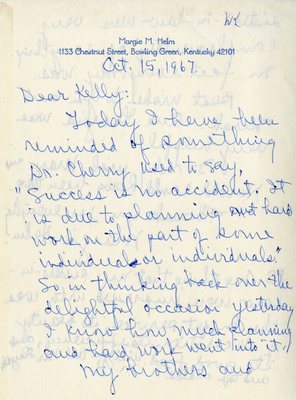 Wk
Margie M. Helm
1133 Chestnut Street, Bowling Green, Kentucky 42101
Oct. 15, 1967.
Dear Kelly:
Today I have been
reminded of something
Dr. Cherry used to say,
"Success is no accident. It
is due to planning and hard
work on the part of some
individual or individuals."
So, in thinking back over the
delightful occasion yesterday
I know how much planning
and hard work went into it.
My brothers and